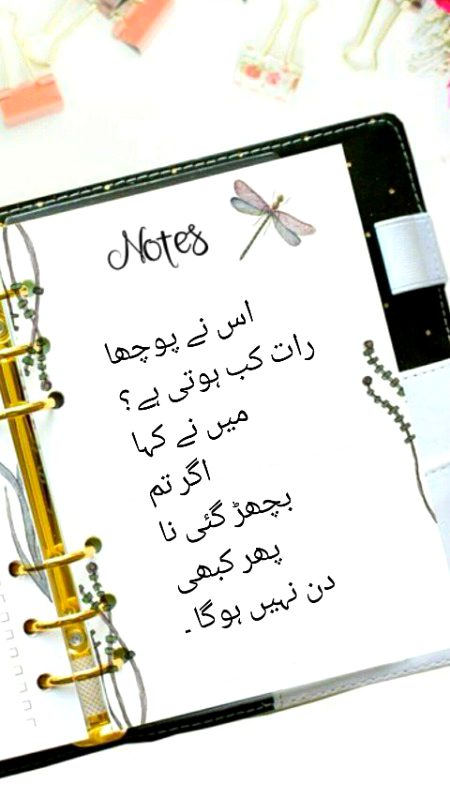 Notes
اس نے پوچھا
رات کب ہوتی ہے؟
میں نے کہا
اگر تم
بچھڑ گئی نا
پھر کبھی
دن نہیں ہوگا۔